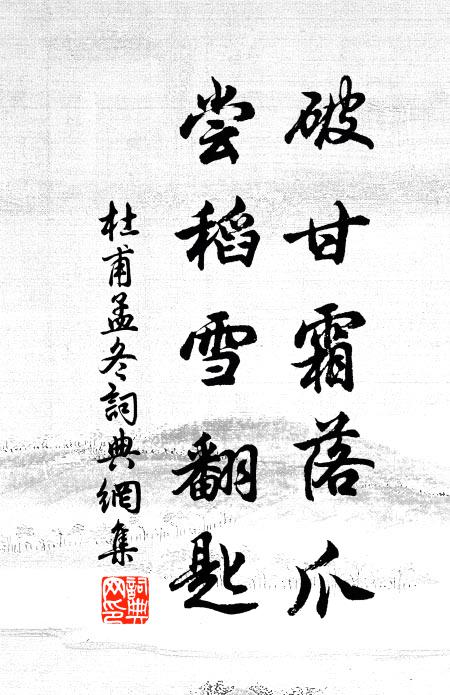 破甘霜落爪
尝稻雪翻匙
杜甫孟冬詞典網集
詞典网印